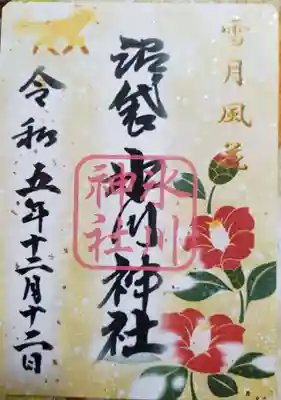 雪月風花
沼袋氷川神社
氷川
神社
令和五年十二月十二日